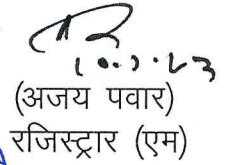 (अजय पवार)
रजिस्ट्रार (एम)